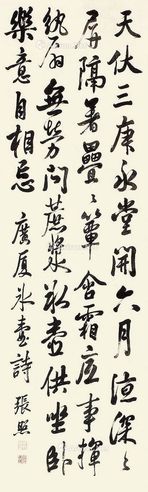 天伏三庚永堂開六月涼深〻
屏隔暑疊〻簟含霜底事揮
紈扇無勞問蔗漿冰壺供坐臥
樂意自相忘 廣廈冰壺詩 張照